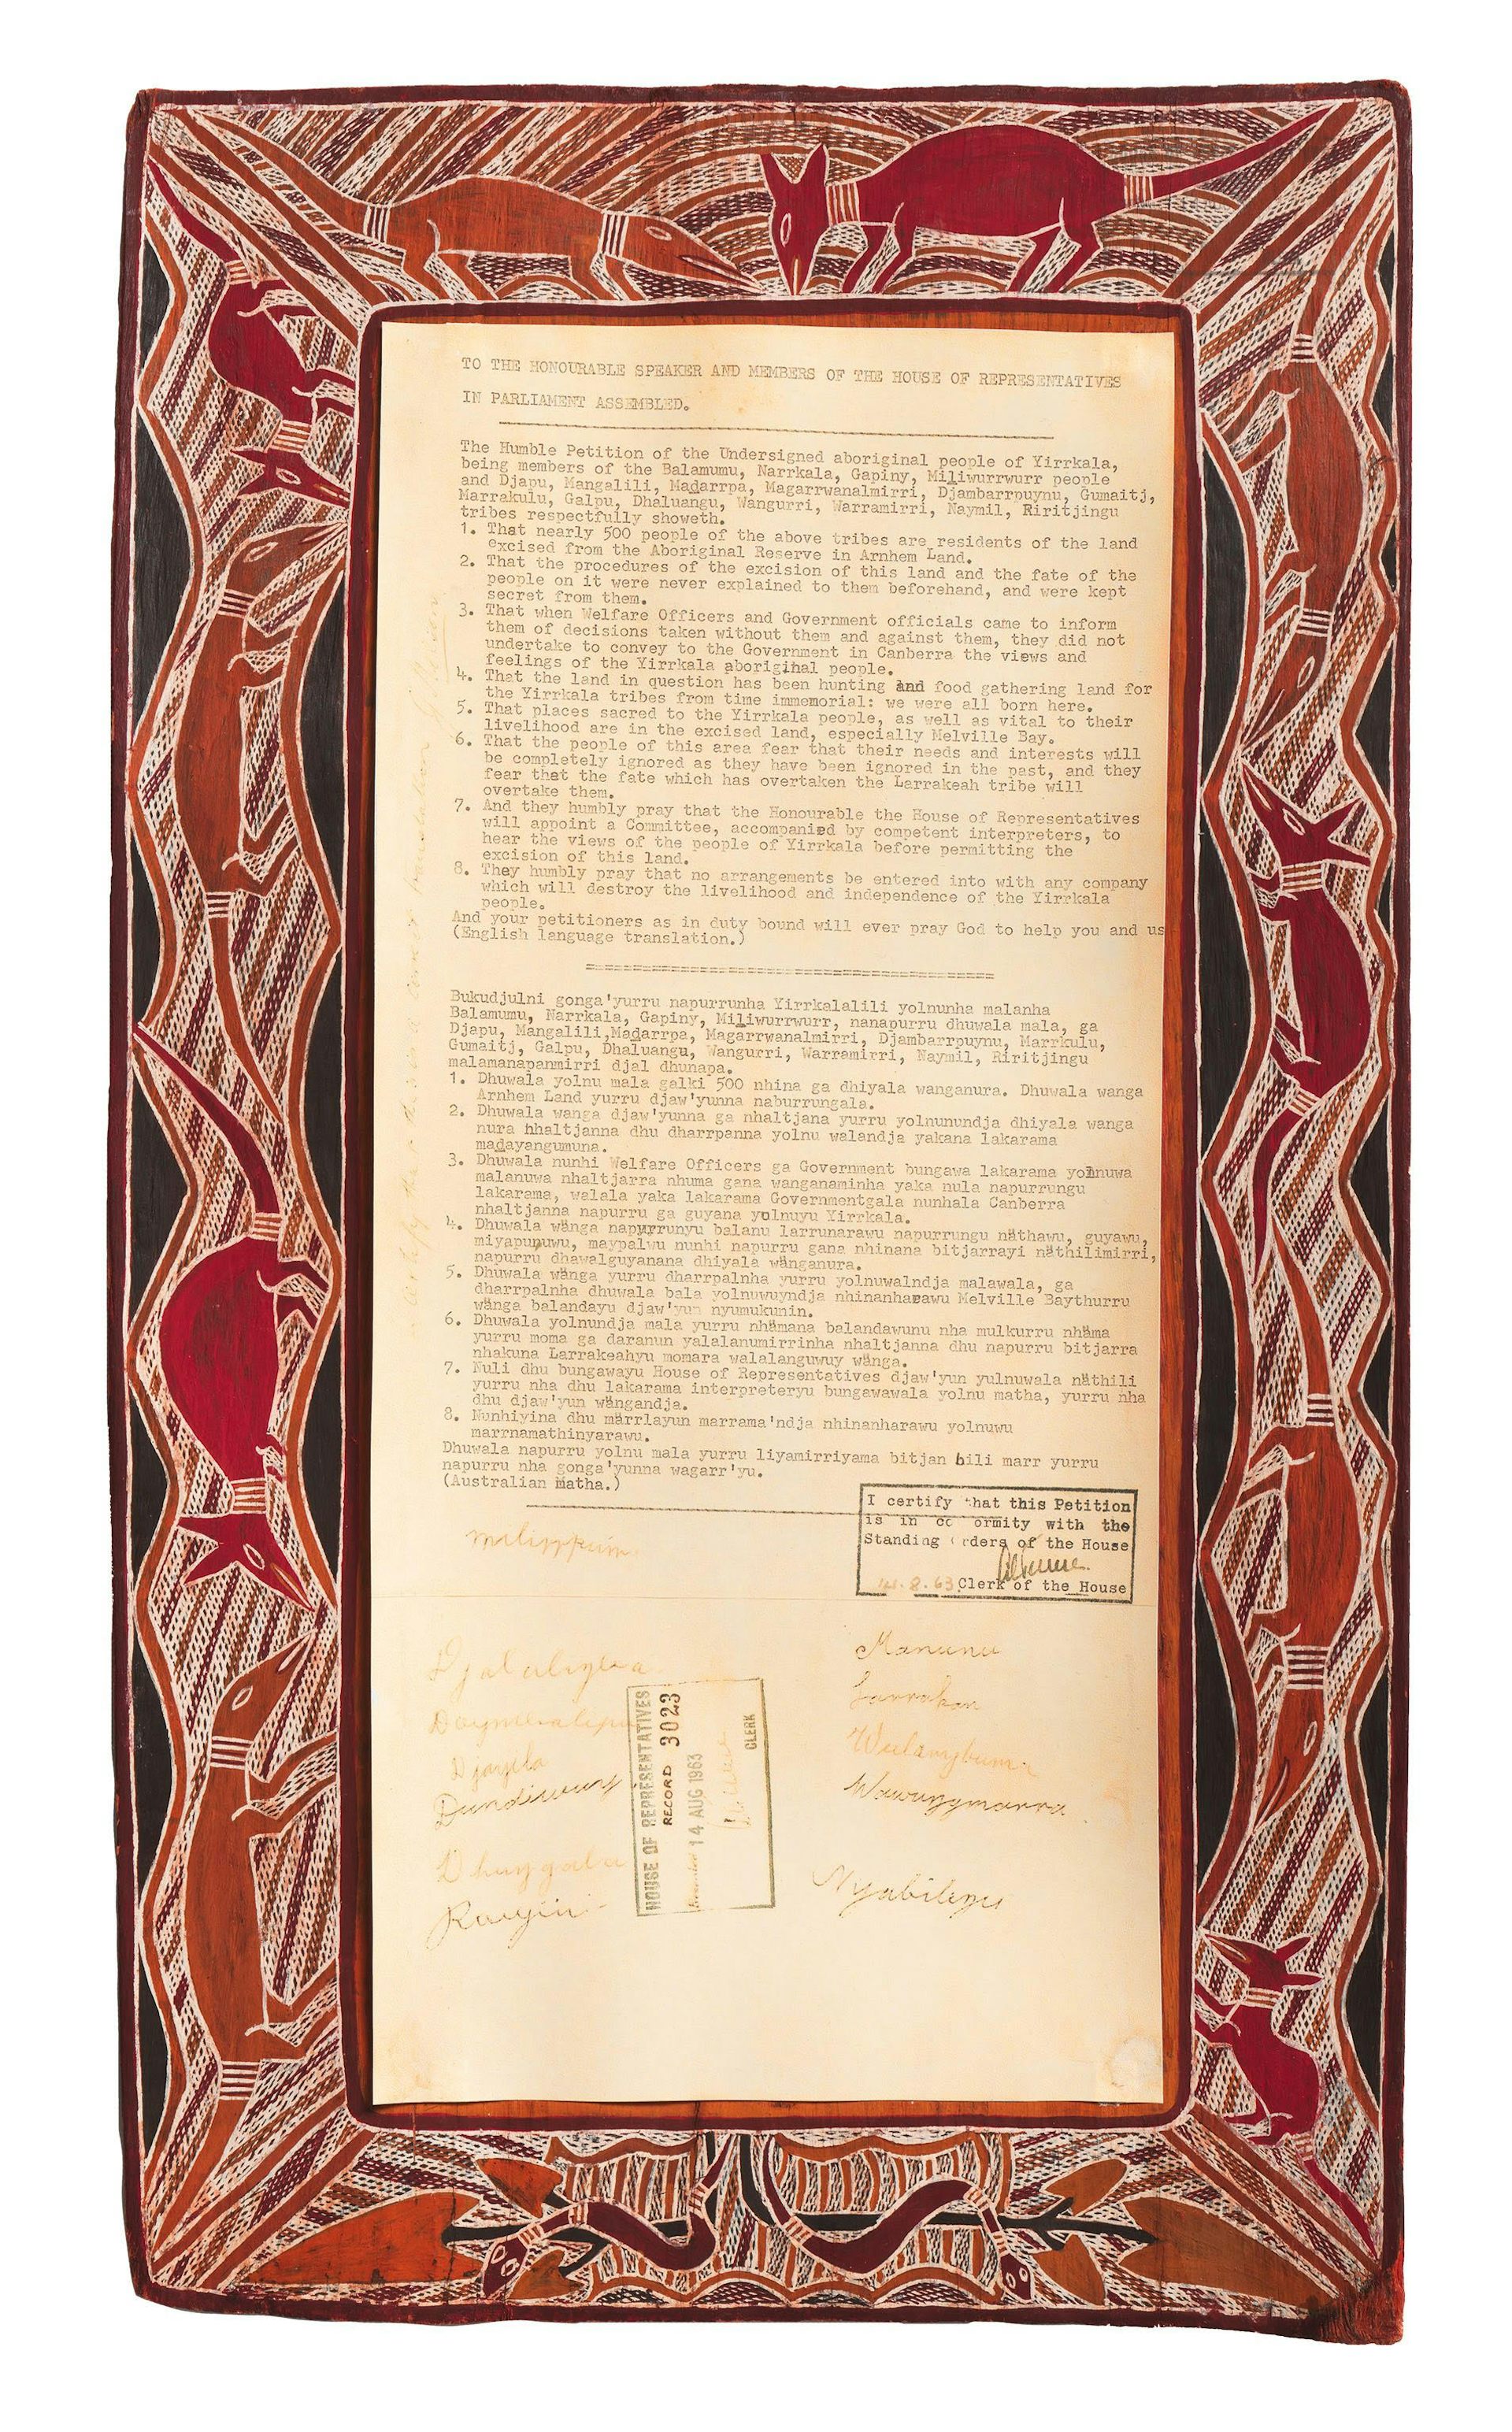 TO THE HONOURABLE SPEAKER AND MEMBERS OF THE HOUSE OF REPRESENTATIVES
IN PARLIAMENT ASSEMBLED.
The Humble Petition of the Undersigned aboriginal people of Yirrkala,
being members of the Balamumu, Narrkala, Gapiny, Miliwurrwurr people
and Djapu, Mangalili, Madarrpa, Magarrwanalmirri, Djambarrpuynu, Gumaitj,
Marrakulu, Galpu, Dhaluangu, Wangurri, Warramirri, Naymil, Riritjingu
tribes respectfully showeth.
1. That nearly 500 people of the above tribes are residents of the land
excised from the Aboriginal Reserve in Arnhem Land.
2. That the procedures of the excision of this land and the fate of the
people on it were never explained to them beforehand, and were kept
secret from them.
3. That when Welfare Officers and Government officials came to inform
them of decisions taken without them and against them, they did not
undertake to convey to the Government in Canberra the views and
feelings of the Yirrkala aboriginal people.
4. That the land in question has been hunting and food gathering land for
the Yirrkala tribes from time immemorial: we were all born here.
5. That places sacred to the Yirrkala people, as well as vital to their
livelihood are in the excised land, especially Melville Bay.
6. That the people of this area fear that their needs and interests will
be completely ignored as they have been ignored in the past, and they
fear that the fate which has overtaken the Larrakeah tribe will
overtake them.
7. And they humbly pray that the Honourable the House of Representatives
will appoint a Committee, accompanied by competent interpreters, to
hear the views of the people of Yirrkala before permitting the
excision of this land.
8. They humbly pray that no arrangements be entered into with any company
which will destroy the livelihood and independence of the Yirrkala
people.
And your petitioners as in duty bound will ever pray God to help you and us
(English language translation.)
Bukudjulni gonga'yurru napurrunha Yirrkalalili yolnunha malanha
Balamumu, Narrkala, Gapiny, Miliwurrwurr, nanapurru dhuwala mala, ga
Djapu, Mangalili, Madarrpa, Magarrwanalmirri, Djambarrpuynu, Marrkulu,
Gumaitj, Galpu, Dhaluangu, Wangurri, Warramirri, Naymil, Riritjingu
malamanapanmirri djal dhunapa.
1. Dhuwala yolnu mala galki 500 nhina ga dhiyala wanganura. Dhuwala wanga
Arnhem Land yurru djaw'yunna naburrungala.
2. Dhuwala wanga djaw'yunna ga nhaltjana yurru yolnunundja dhiyala wanga
nura nhaltjanna dhu dharrpanna yolnu walandja yakana lakarama
madayangumuna.
3. Dhuwala nunhi Welfare Officers ga Government bungawa lakarama yolnuwa
malanuwa nhaltjarra nhuma gana wanganaminha yaka nula napurrungu
lakarama, walala yaka lakarama Governmentgala nunhala Canberra
nhaltjanna napurru ga guyana yulnuyu Yirrkala.
4. Dhuwala wänga napurrunyu balanu larrunarawu napurrungu näthawu, guyawu,
miyapunuwu, maypalwu nunhi napurru gana nhinana bitjarrayi näthilimirri,
napurru dhawalguyanana dhiyala wänganura.
5. Dhuwala wänga yurru dharrpalnha yurru yolnuwalndja malawala, ga
dharrpalnha dhuwala bala yolnuwuyndja nhinanharawu Melville Baythurru
wänga balandayu djaw'yun nyumukunin.
6. Dhuwala yolnundja mala yurru nhämana balandawunu nha mulkurru nhäma
yurru moma ga daranun yalalanumirrinha nhaltjanna dhu napurru bitjarra
nhakuna Larrakeahyu momara walalanguwuy wänga.
7. Nuli dhu bungawayu House of Representatives djaw'yun yulnuwala näthili
yurru nha dhu lakarama interpreteryu bungawawala yolnu matha, yurru nha
dhu djaw'yun wängandja.
8. Nunhiyina dhu märrlayun marrama'ndja nhinanharawu yolnuwu
marrnamathinyarawu.
Dhuwala napurru yolnu mala yurru liyamirriyama bitjan bili marr yurru
napurru nha gonga'yunna wagarr'yu.
(Australian matha.)
I certify that this Petition
is in co ormity with the
Standing rders of the House
14.8.63 Clerk of the House
milirrpum
Djalalingba
Daymbalipu
Djayila
Dundiwuy
Dhuygala
Raiyin
Manunu
Larrakan
Wulanybuma
Wawunymarra
Nyabilingu
HOUSE OF REPRESENTATIVES
RECORD 3023
14 AUG 1963
CLERK